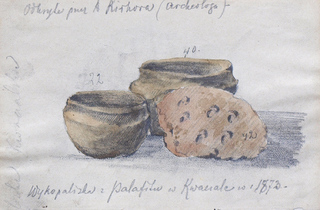 Odkryte przez A Kirkora (archeologa)
40.
22
42
Wykopaliska z palafitów w Kwaczale w r. 1872.